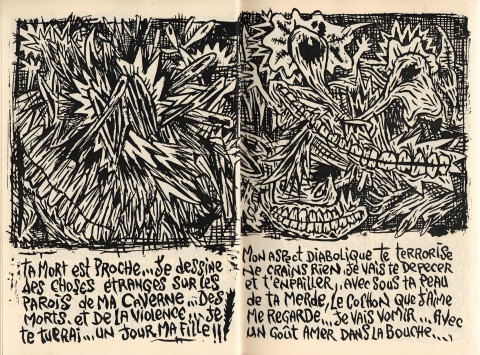 TA MORT EST PROCHE... JE DESSINE
DES CHOSES ETRANGES SUR LES
PAROIS DE MA CAVERNE... DES
MORTS.. ET DE LA VIOLENCE... JE
TE TUERAI... UN JOUR MA FILLE!!!
MON ASPECT DIABOLIQUE TE TERRORISE
NE CRAINS RIEN. JE VAIS TE DEPECER
ET T'ENPAILLER.. AVEC SOUS TA PEAU
DE TA MERDE, LE COCHON QUE J'AIME
ME REGARDE... JE VAIS VOMIR... AVEC
UN GOÛT AMER DANS LA BOUCHE....